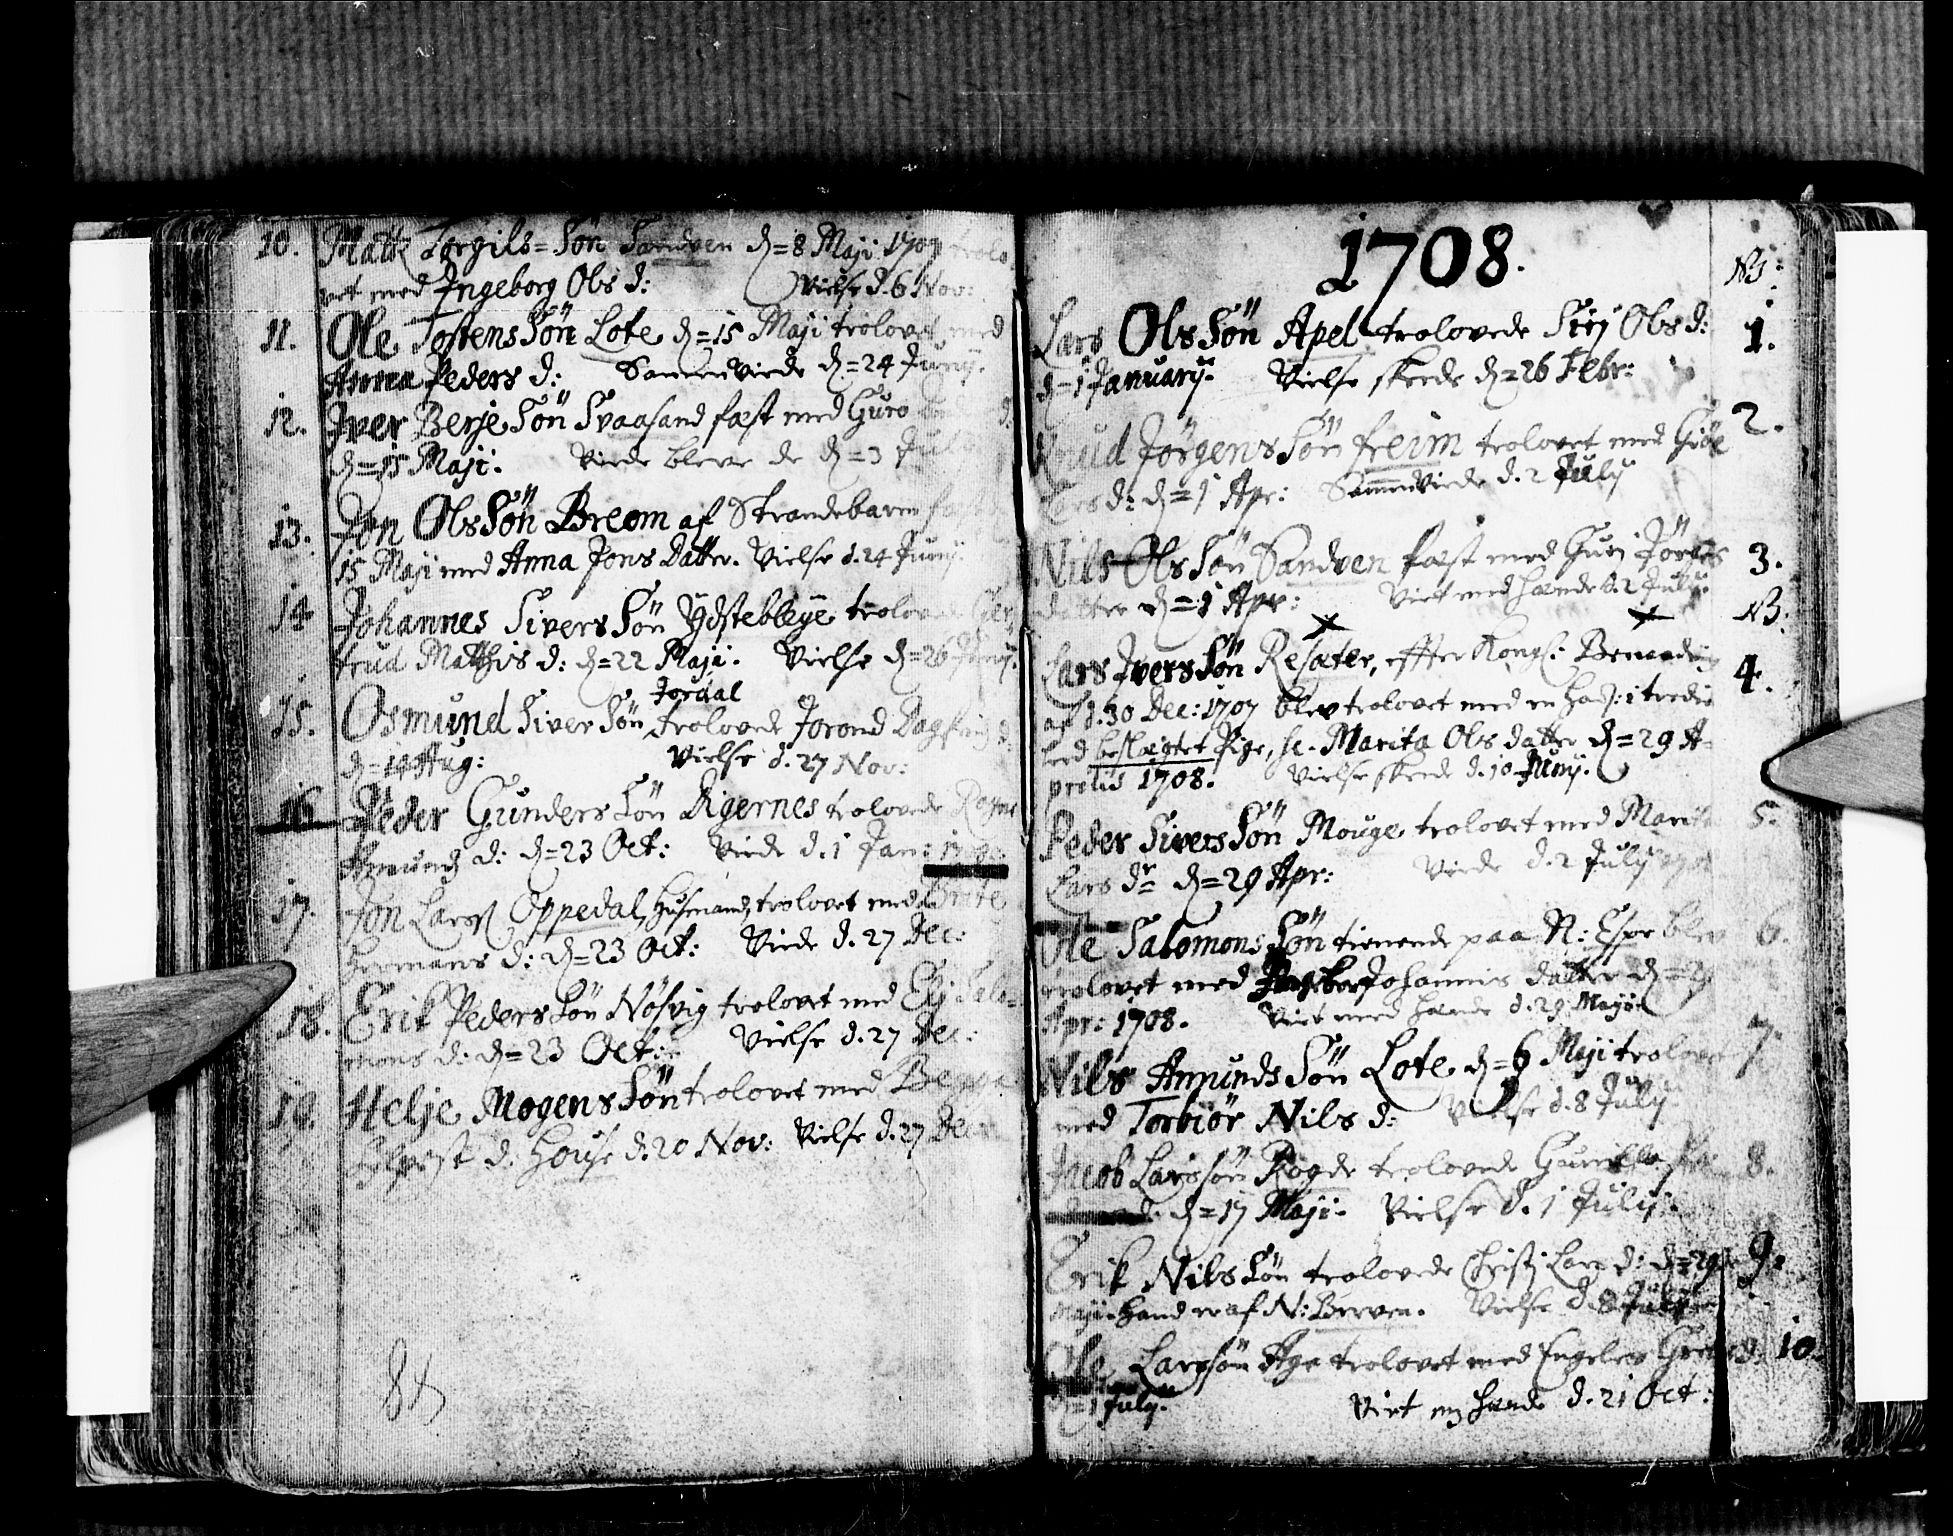 10. Matz Torgils=Sön Sandven d=8 Maji 1707 trolo
vet med Ingeborg Ols d: Vielse d. 6 Nov:
11. Ole TostensSön Lote d=15 Maji trolovet med
Anna Peders d: Sammenviede d=24 Junij.
12. Iver BerjeSön Svaasand fæst med Guro d:
d=15 Maji. Viede bleve de d=3 Julij
13. Jon OlsSön Breom af Strandebarm
15 Maji med Anna Jons Datter. Vielse d. 24 Junij.
14 Johannes SiversSön Ydstebleye trolovede Ger
trud Matthis d: d=22 Maji. Vielse d=26 Junij.
Jordal
15. Osmund SiverSön trolovede Jorond Dagfins d:
d=14 Aug: Vielse d. 27 Nov:
16 Peder GundersSön Digernes trolovede
Amunds d: d=23 Oct: Viede d. 1 Jan:
17. Jon Larss Oppedal, Husmand, trolovet med Brite
Hermans d: d=23 Oct: Viede d. 27 Dec:
18. Erik PedersSön Nösvig trolovet med Elj Salo=
mons d: d=23 Oct: Vielse d. 27 Dec:
19. Helje MogensSön trolovet med
d: House d. 20 Nov: Vielse d. 27 Dec:
84
1708.
N3:
Lars OlsSön Apel trolovede Sirj Ols d: 1.
d=1 Januarij. Vielse skeede d=26 Febr:
Knud JörgensSön freim trolovet med Giöe 2.
Lars d: d=1 Apr: Sammenviede d. 2 Julij
Nils OlsSön Sandven fæst med Guri Jörgens 3.
datter d=1 Apr: Viet med hende d. 2 Julij.
N3:
Lars IversSön Resæter, effter Kongl: Benaading 4.
af d. 30 Dec: 1707 blev trolovet med en ham i tredie
led beslægtet Pige, sc. Marita Ols datter d=29 A-
prilis 1708. Vielse skeede d. 10 Junij.
Peder SiversSön Mouge trolovet med Marita 5.
Lars dr d=29 Apr: Viede d. 2 Julij
Ole SalomonsSön tienende paa N: Espe blev 6.
trolovet med Johannis datter d=29
Apr: 1708. Viet med hende d. 29 Maji
Nils AmundsSön Lote d=6 Maji trolovet 7.
med Torbiör Nils d: Vielse d. 8 Julij.
Jacob Larssön Rogde trolovede 8.
d: d=17 Maji. Vielse d. 1 Julij.
Erik NilsSön trolovede Christj Lars d: d=29 9.
Maji. Hand er af N: Berven. Vielse d. 8 Julij
Ole Larssön Age trolovet med Engelev d: 10.
d=1 Julij. Viet m hende d. 21 Oct: